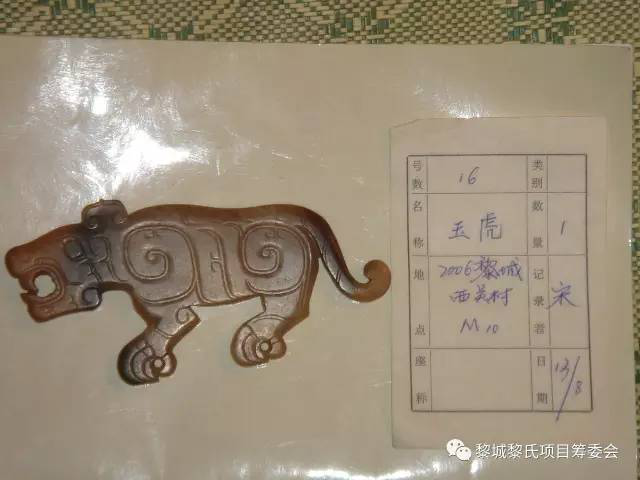 号数 16 类别
名称 玉虎 数量 1
地点 2006黎城 记录者 宋
西关村
M10
座称 日期 13/8
黎城黎氏项目筹委会